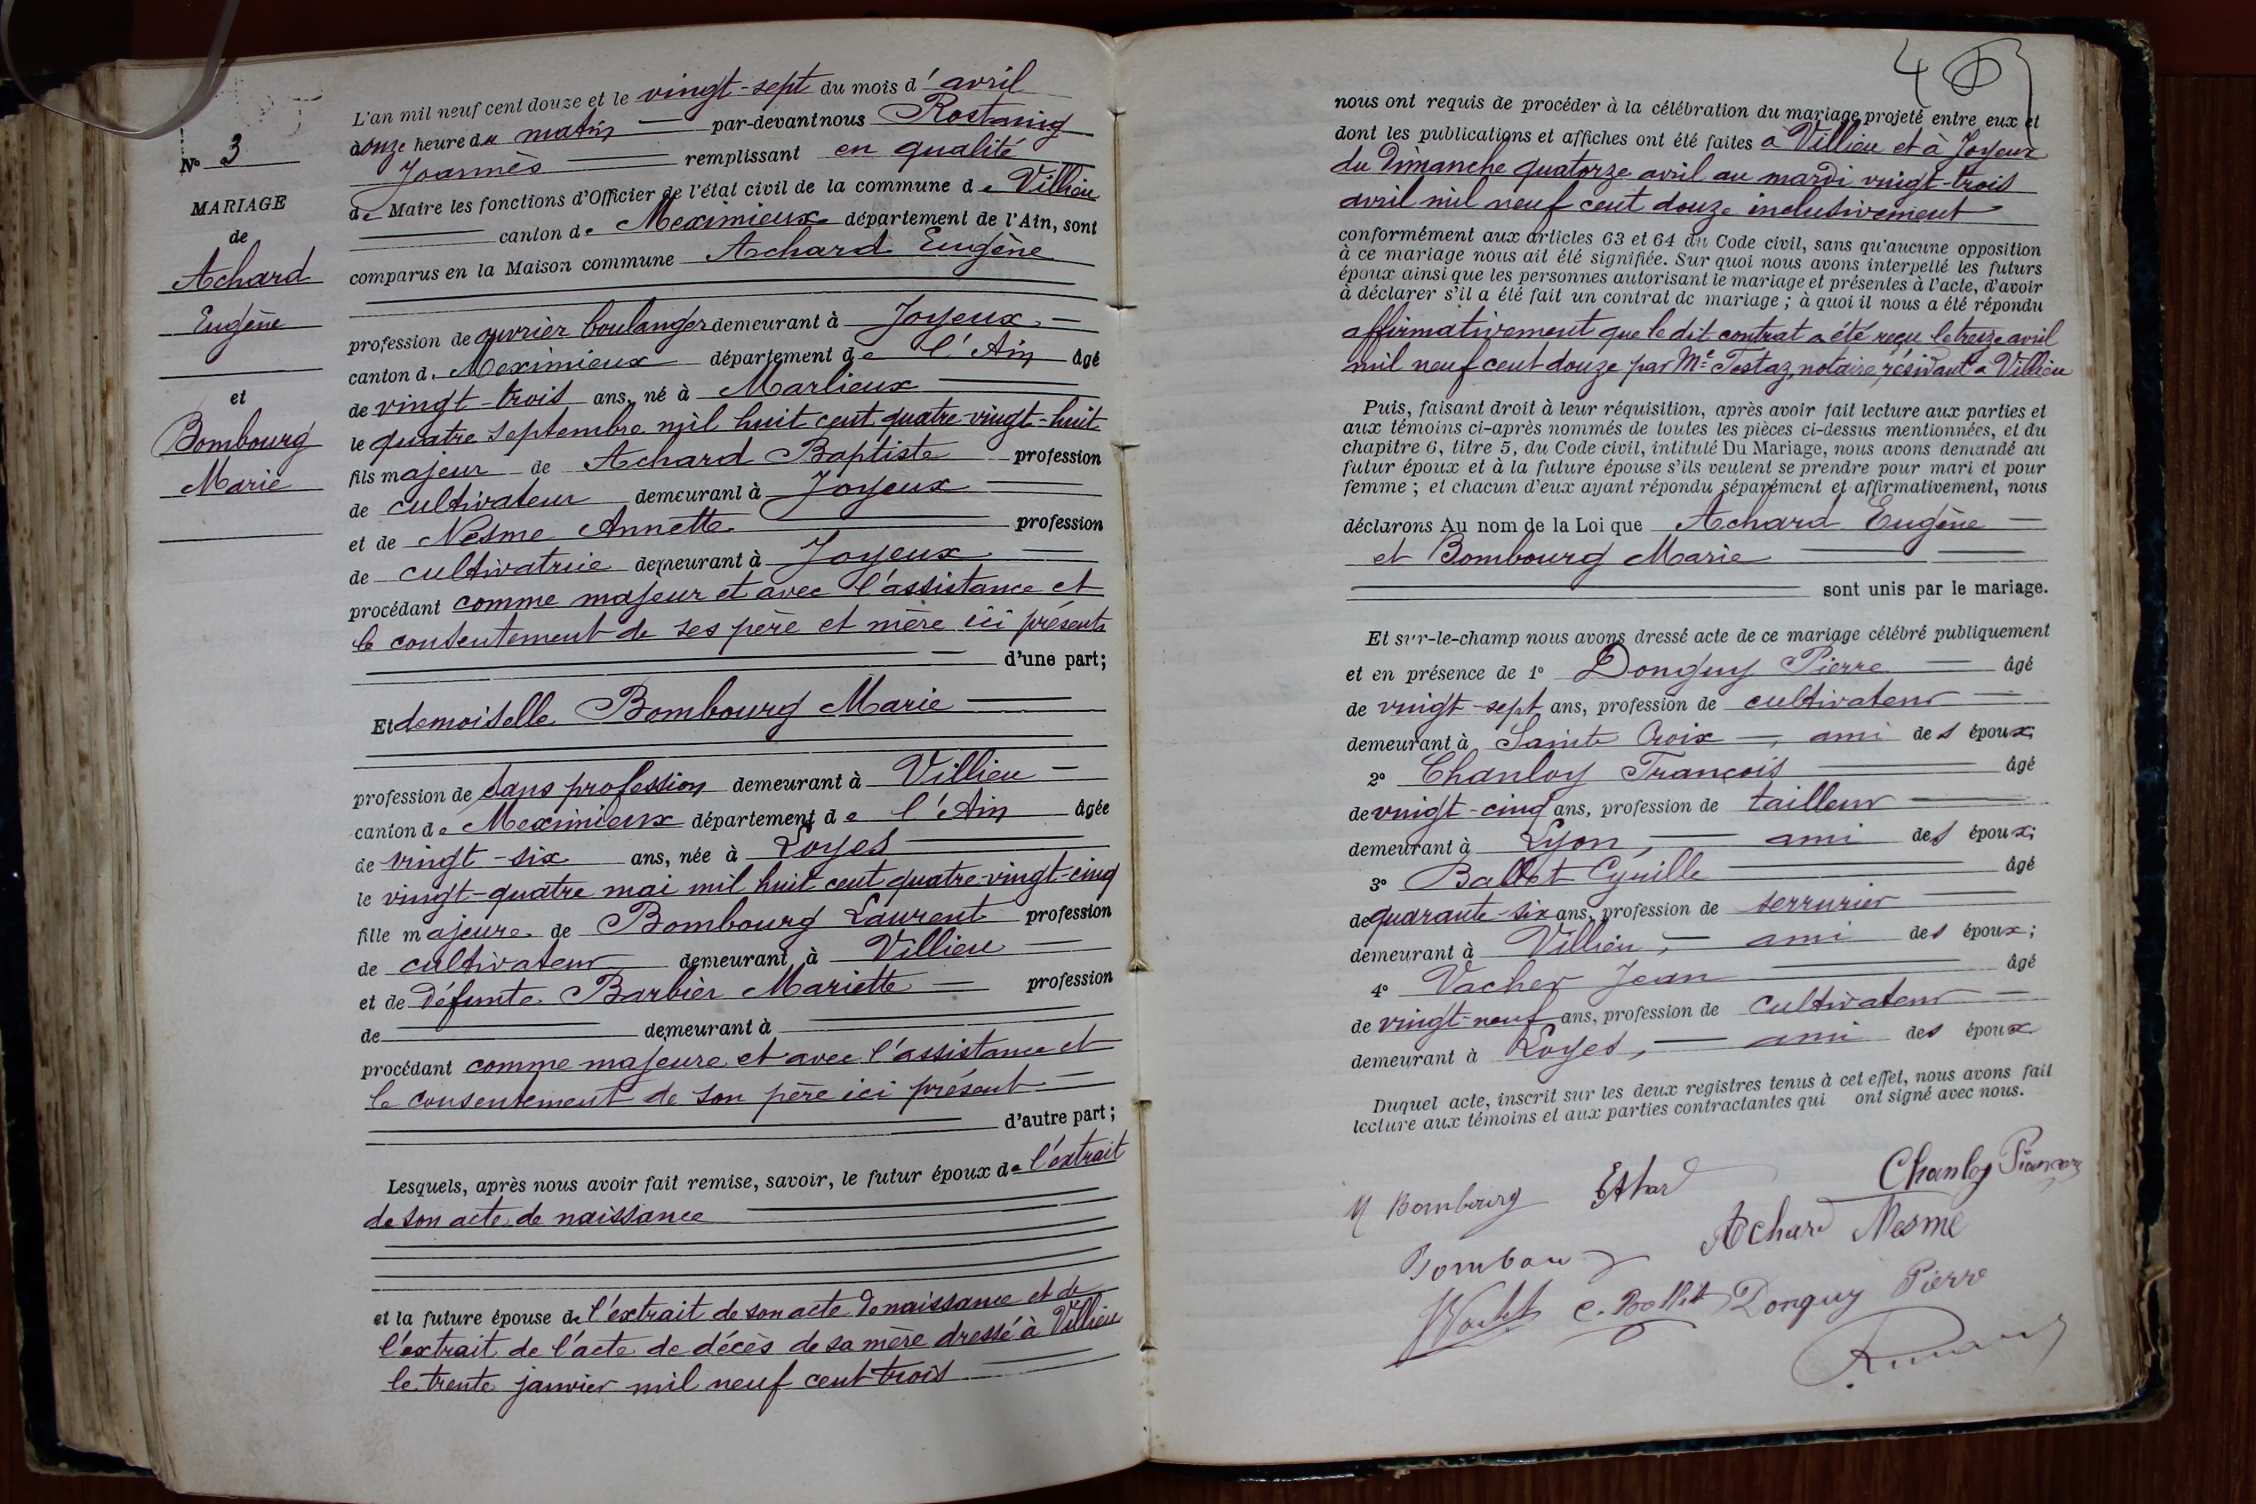 No 3
MARIAGE
de
Achard
Eugène
et
Bombourg
Marie
L'an mil neuf cent douze et le vingt-sept du mois d'avril
à onze heure du matin par-devant nous Rostaing
Joannès remplissant en qualité
de Maire les fonctions d'Officier de l'état civil de la commune de Villieu
canton de Meximieux département de l'Ain, sont
comparus en la Maison commune Achard Eugène
profession de ouvrier boulanger demeurant à Joyeux
canton d. Meximieux département de l'Ain âgé
de vingt-trois ans, né à Marlieux
le quatre septembre mil huit cent quatre-vingt-huit
fils majeur de Achard Baptiste profession
de cultivateur demeurant à Joyeux
et de Nesme Annette profession
de cultivatrice demeurant à Joyeux
procédant comme majeur et avec l'assistance et
le consentement de ses père et mère ici présents
d'une part;
Et demoiselle Bombourg Marie
profession de sans profession demeurant à Villieu
canton de Meximieux département de l'Ain âgée
de vingt-six ans, née à Loyes
le vingt-quatre mai mil huit cent quatre-vingt-cinq
fille majeure de Bombourg Laurent profession
de cultivateur demeurant à Villieu
et de défunte Barbier Mariette profession
de demeurant à
procédant comme majeure et avec l'assistance et
le consentement de son père ici présent
d'autre part;
Lesquels, après nous avoir fait remise, savoir, le futur époux de l'extrait
de son acte de naissance
et la future épouse de l'extrait de son acte de naissance et de
l'extrait de l'acte de décès de sa mère dressé à Villieu
le trente janvier mil neuf cent trois
4
nous ont requis de procéder à la célébration du mariage projeté entre eux et
dont les publications et affiches ont été faites à Villieu et à Joyeux
du Dimanche quatorze avril au mardi vingt-trois
avril mil neuf cent douze inclusivement
conformément aux articles 63 et 64 du Code civil, sans qu'aucune opposition
à ce mariage nous ait été signifiée. Sur quoi nous avons interpellé les futurs
époux ainsi que les personnes autorisant le mariage et présentes à l'acte, d'avoir
à déclarer s'il a été fait un contrat de mariage; à quoi il nous a été répondu
affirmativement que le dit contrat a été reçu le treize avril
mil neuf cent douze par Me Testaz, notaire, résidant à Villieu
Puis, faisant droit à leur réquisition, après avoir fait lecture aux parties et
aux témoins ci-après nommés de toutes les pièces ci-dessus mentionnées, et du
chapitre 6, titre 5, du Code civil, intitulé Du Mariage, nous avons demandé au
futur époux et à la future épouse s'ils veulent se prendre pour mari et pour
femme; et chacun d'eux ayant répondu séparément et affirmativement, nous
déclarons Au nom de la Loi que Achard Eugène
et Bombourg Marie
sont unis par le mariage.
Et sur-le-champ nous avons dressé acte de ce mariage célébré publiquement
et en présence de 1° Donguy Pierre âgé
de vingt-sept ans, profession de cultivateur
demeurant à Sainte Croix, ami des époux;
2° Chanloy François âgé
de vingt-cinq ans, profession de tailleur
demeurant à Lyon, ami des époux;
3° Ballet Cyrille âgé
de quarante-six ans, profession de serrurier
demeurant à Villieu, ami des époux;
4° Vacher Jean âgé
de vingt-neuf ans, profession de cultivateur
demeurant à Loyes, ami des époux
Duquel acte, inscrit sur les deux registres tenus à cet effet, nous avons fait
lecture aux témoins et aux parties contractantes qui ont signé avec nous.
M Bombourg EAchard Chanloy François
Bombourg Achard Nesme
C. Ballet Donguy Pierre